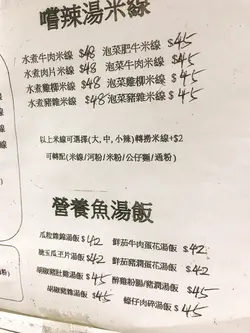 嚐辣湯米線
水煮牛肉米線 $48 泡菜肥牛米線 $45
水煮肉片米線 $48 泡菜牛肉米線 $45
水煮雞柳米線 $48 泡菜雞柳米線 $45
水煮豬雜米線 $48 泡菜豬雜米線 $45
以上米線可選擇(大, 中, 小辣)轉撈米線+$2
可轉配(米線/河粉/米粉/公仔麵/通粉)
營養魚湯飯
瓜粒雜錦湯飯 $42 鮮茄牛肉蛋花湯飯 $42
桃玉瓜玉片湯飯 $42 鮮茄豬潤蛋花湯飯 $42
胡椒豬肚雞湯飯 $45 醉雞粉腸/豬潤湯飯 $45
胡椒豬雜湯飯 $45 蠔仔肉碎湯飯 $45